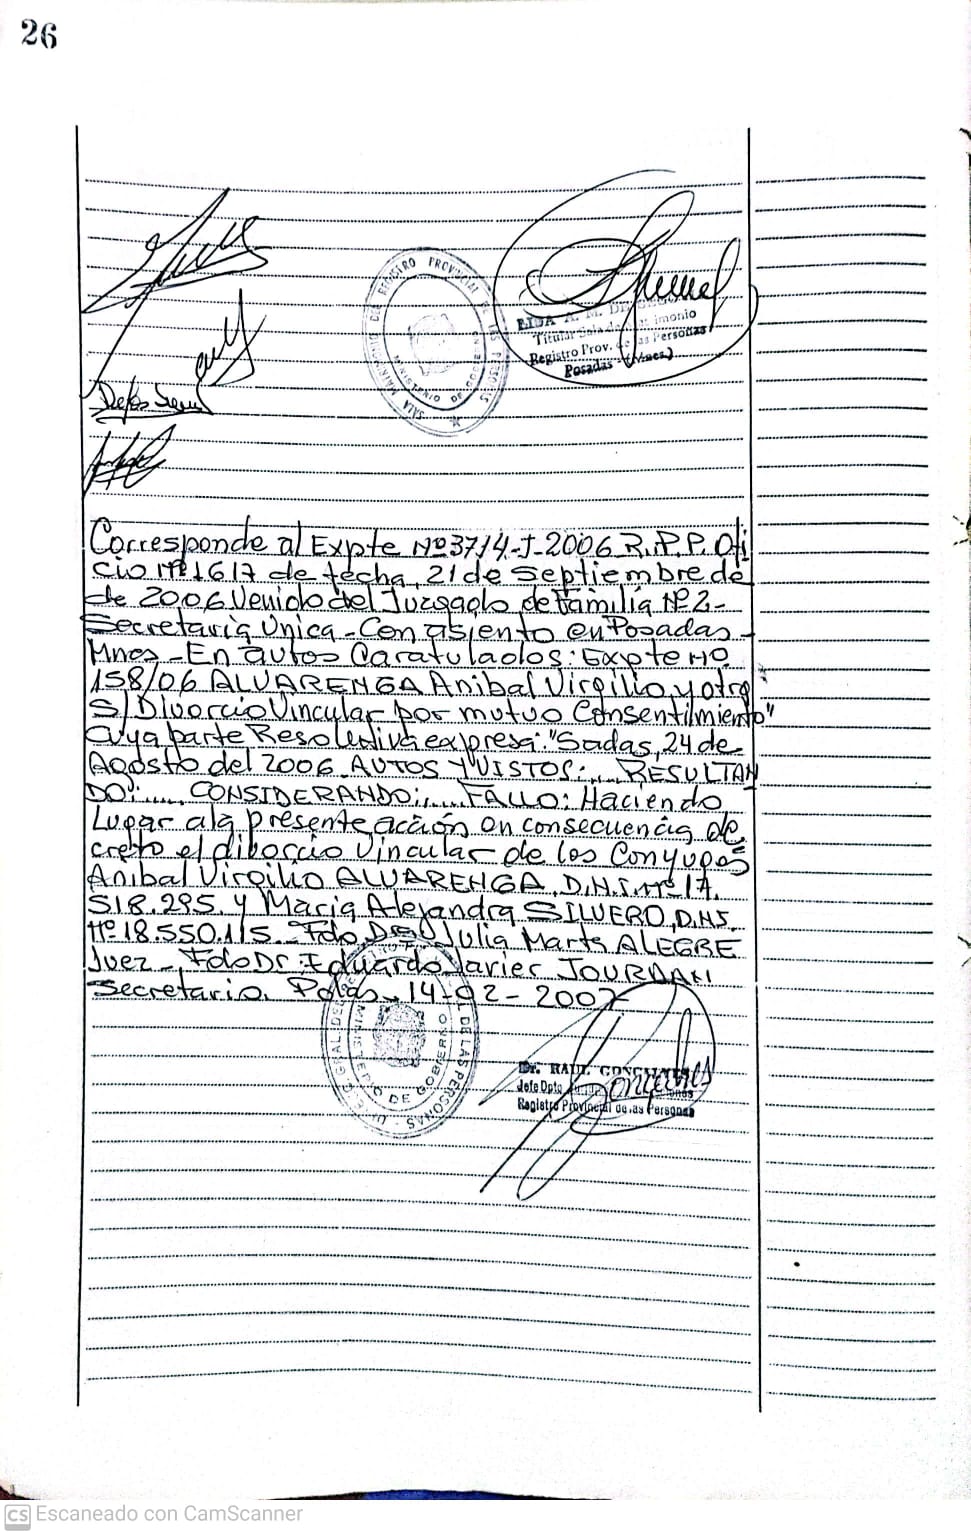 26
SALA MATRIMONIO DEL REGISTRO PROVINCIAL DE LAS PERSONAS
MINISTERIO DE GOBIERNO
ELDA A. M. DE
Titular Sala de imonio
Registro Prov. de las Personas
Posadas (Mnes.)
Corresponde al Expte Nº 3714-J-2006 R.P.P. Ofi
cio nº 1617 de fecha, 21 de Septiembre de
de 2006 Venido del Juzgado de Familia Nº 2-
Secretaria Unica - Con asiento en Posadas -
Mnes - En autos Caratulados: Expte Nº
158/06 ALVARENGA Anibal Virgilio y otra
S/ Divorcio Vincular por mutuo Consentimiento"
cuya parte Resolutiva expresa: "Sadas, 24 de
Agosto del 2006. AUTOS Y VISTOS:.... RESULTAN
DO:..... CONSIDERANDO:..... FALLO: Haciendo
Lugar a la presente acción en consecuencia de
creto el divorcio Vincular de los Conyuges
Anibal Virgilio ALVARENGA, D.N.I. Nº 17.
518.295. y Maria Alejandra SILVERO, D.N.I.
Nº 18.550.115.- Fdo Dra Julia Marta ALEGRE
Juez - Fdo Dr. Eduardo Javier JOURDAN
Secretario. Pdas, 14-02-2007
DE LAS PERSONAS
MINISTERIO DE GOBIERNO
Dr. RAUL GONCALVES
Jefe Dpto
Registro Provincial de las Personas
CS Escaneado con CamScanner